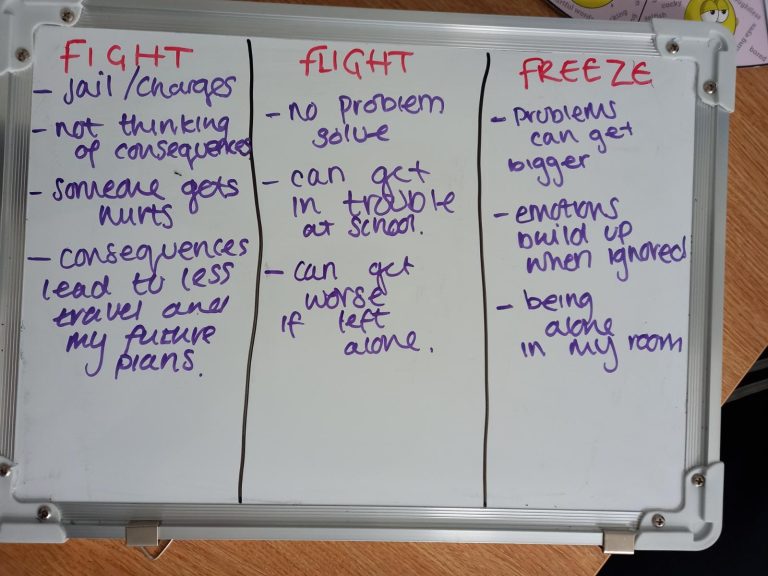 FIGHT
- Jail/Charges
- not thinking
of consequences
- someone gets
hurts
- consequences
lead to less
travel and
my future
plans.
FLIGHT
- no problem
solve
- can get
in trouble
at school.
- can get
worse
if left
alone.
FREEZE
- problems
can get
bigger
- emotions
build up
when ignored
- being
alone
in my room
cocky
bored